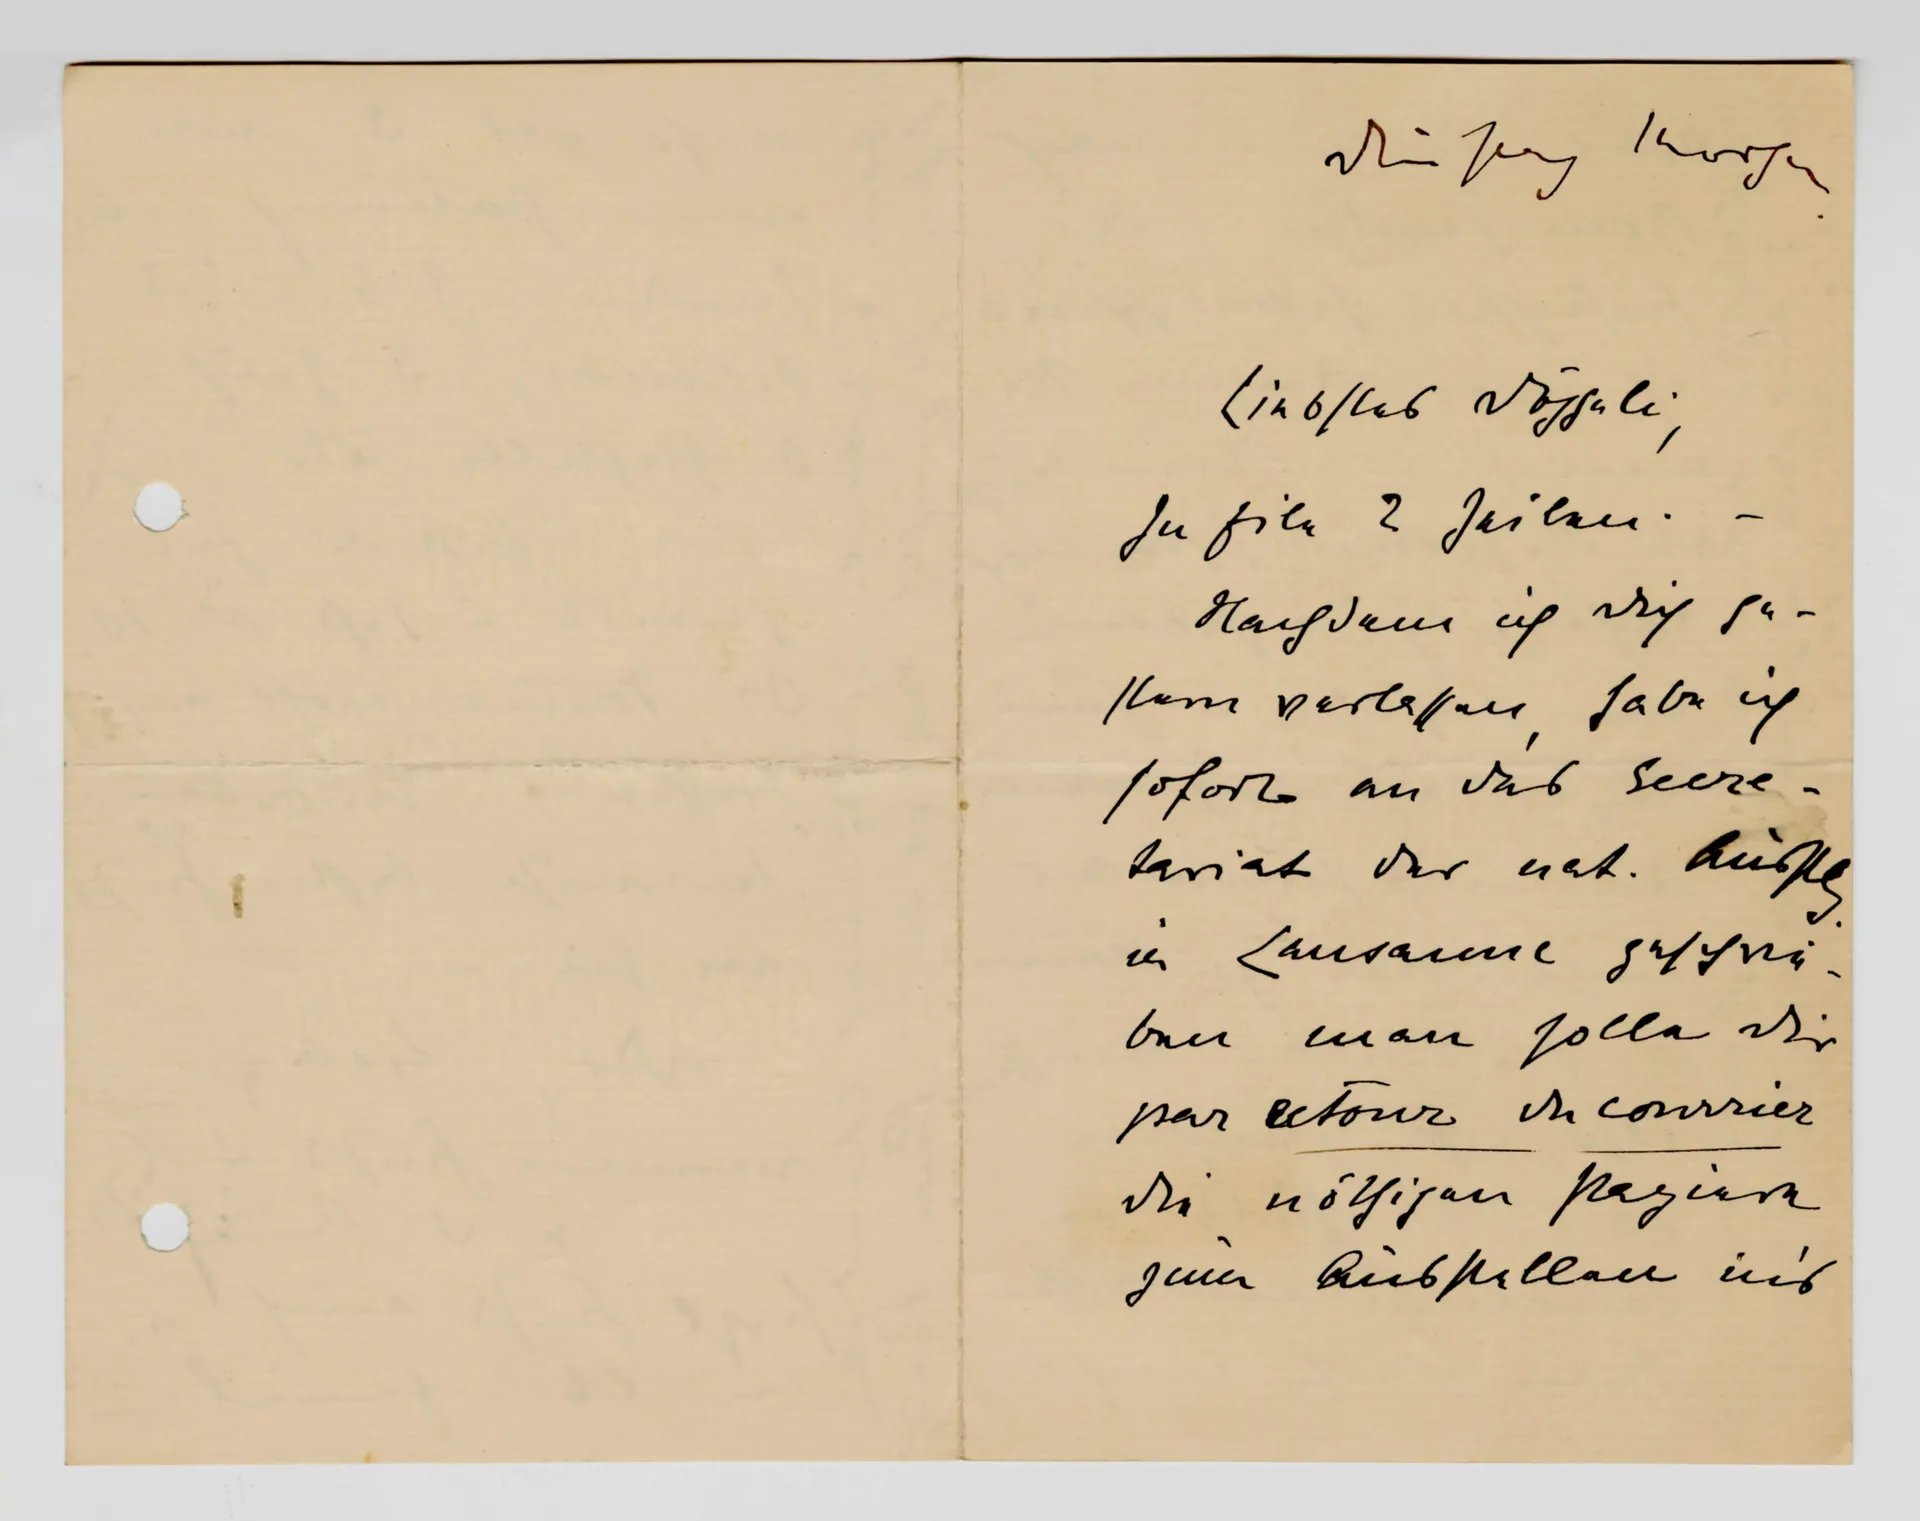 Dienstag Morgen.
Liebstes Döggeli,
In Eile 2 Zeilen. –
Nachdem ich Dich ge-
stern verlassen, habe ich
sofort an das Secre-
tariat der nat. Ausstlg.
in Lausanne geschrie-
ben man solle Dir
par retour du courrier
die nöthigen Papiere
zum Ausstellen in's